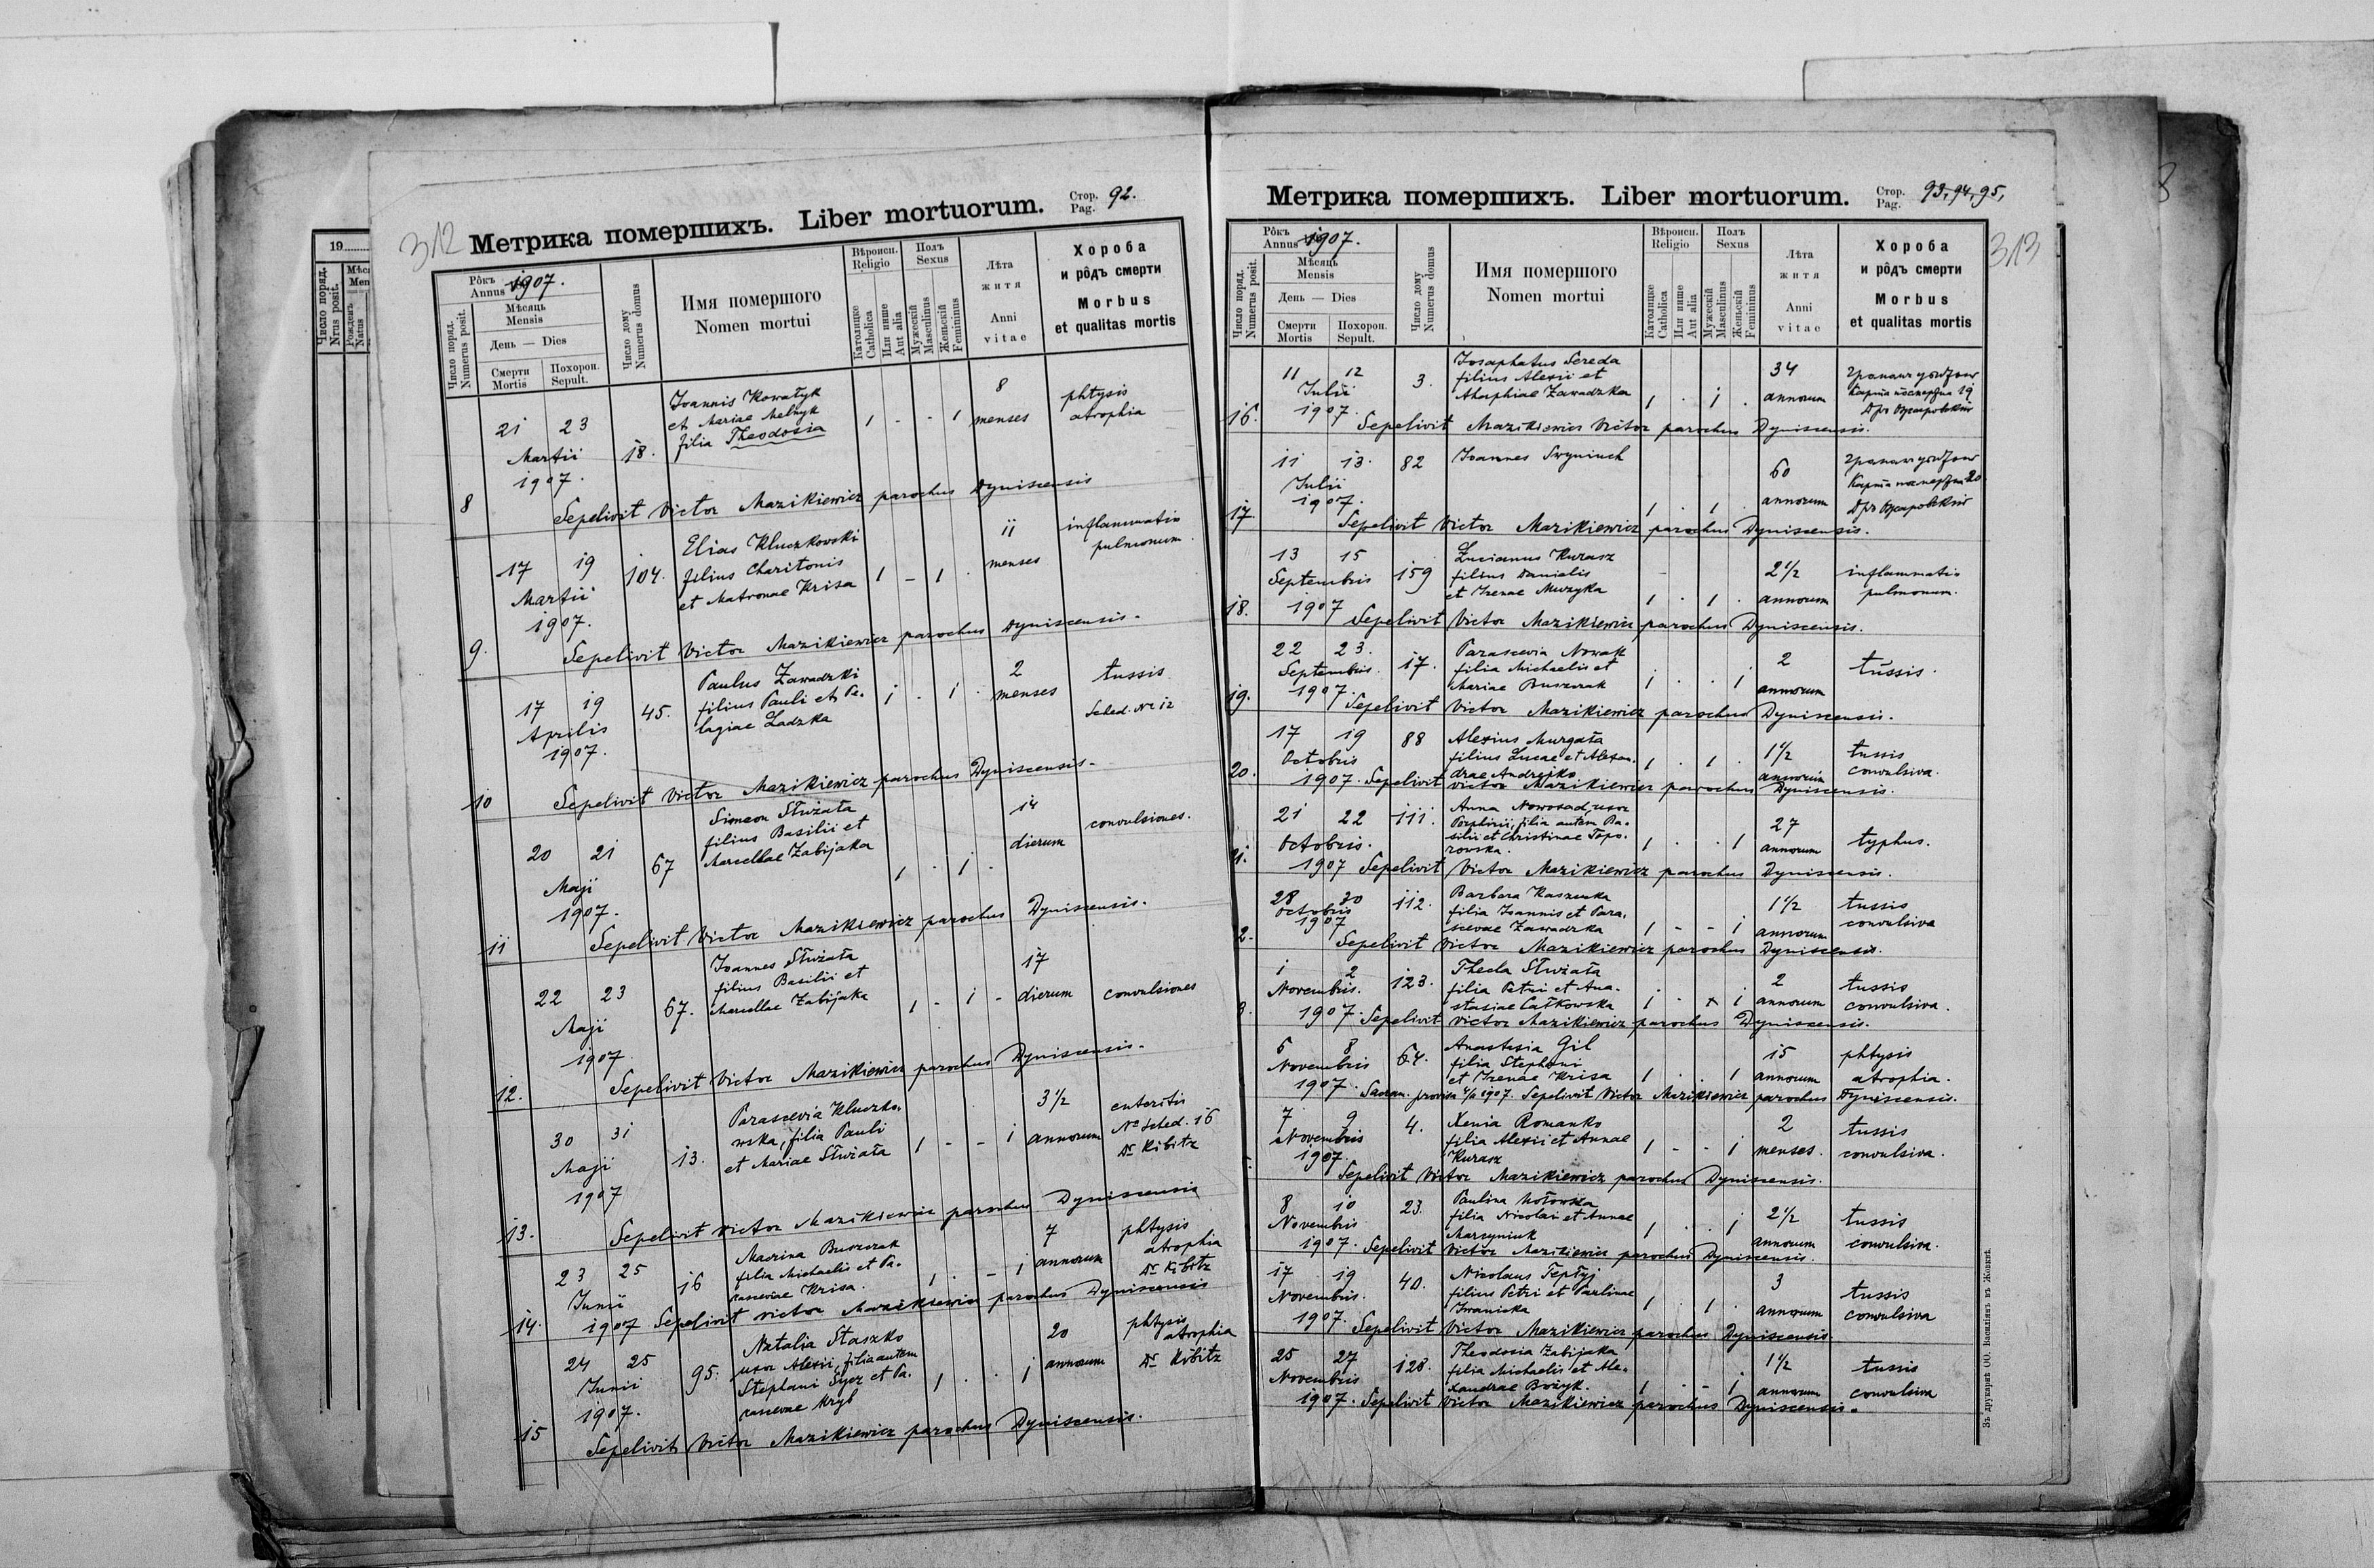 312
Метрика помершихъ. Liber mortuorum.
Стор. Pag. 92.
Рôкъ Annus 1907.
Число поряд. Numerus posit.
Мѣсяць Mensis
День — Dies
Смерти Mortis
Похорон. Sepult.
Число дому Numerus domus
Имя помершого Nomen mortui
Вѣроисп. Religio
Католицке Catholica
Или инше Aut alia
Полъ Sexus
Мужескій Masculinus
Женьскій Femininus
Лѣта житя Anni vitae
Хороба и рôдъ смерти Morbus et qualitas mortis
21 23 Martii 1907. 18.
Joannis Kowałyk
et Mariae Melnyk
filia Theodosia
1 - - 1
8 menses
phtysis
atrophia
8 Sepelivit Victor Mazikiewicz parochus Dyniscensis
17 19 Martii 1907. 104.
Elias Kluczkowski
filius Charitonis
et Matronae Krisa
1 - 1 .
11 menses
inflammatio
pulmonum.
9. Sepelivit Victor Mazikiewicz parochus Dyniscensis.
17 19 Aprilis 1907. 45.
Paulus Zawadzki
filius Pauli et Pe-
lagiae Ladzka
1 . 1 .
2 menses
tussis
Sched. No 12
10 Sepelivit Victor Mazikiewicz parochus Dyniscensis.
20 21 Maji 1907. 67
Simeon Służała
filius Basilii et
Marcellae Zabijaka
1 . 1 .
14 dierum
convulsiones.
11 Sepelivit Victor Mazikiewicz parochus Dyniscensis.
22 23 Maji 1907 67.
Joannes Służała
filius Basilii et
Marcellae Zabijaka
1 - 1 -
17 dierum
convulsiones
12. Sepelivit Victor Mazikiewicz parochus Dyniscensis.
30 31 Maji 1907 13.
Parascevia Kluczko-
wska, filia Pauli
et Mariae Służała
1 - - 1
3 1/2 annorum
enteritis
No Sched. 16
Dr Kibitz
13. Sepelivit Victor Mazikiewicz parochus Dyniscensis
23 25 Junii 16
Macrina Buszczak
filia Michaelis et Pa-
rasceviae Krisa.
1 . - 1
7 annorum
phtysis
atrophia
Dr Kibitz
14. 1907 Sepelivit Victor Mazikiewicz parochus Dyniscensis
24 25 Junii 1907. 95.
Natalia Staszko
uxor Alexii, filia autem
Stephani Sycz et Pa-
rascevae Kryś
1 . . 1
20 annorum
phtysis
atrophia
Dr Kibitz
15 Sepelivit Victor Mazikiewicz parochus Dyniscensis.
Метрика помершихъ. Liber mortuorum.
Стор. Pag. 93, 94, 95,
313
Рôкъ Annus 1907.
Число поряд. Numerus posit.
Мѣсяць Mensis
День — Dies
Смерти Mortis
Похорон. Sepult.
Число дому Numerus domus
Имя помершого Nomen mortui
Вѣроисп. Religio
Католицке Catholica
Или инше Aut alia
Полъ Sexus
Мужескій Masculinus
Женьскій Femininus
Лѣта житя Anni vitae
Хороба и рôдъ смерти Morbus et qualitas mortis
11 12 Julii 1907. 3.
Josaphatus Sereda
filius Alexii et
Ahaphiae Zawadzka
1 . 1 .
34 annorum
16. Sepelivit Mazikiewicz Victor parochus Dyniscensis.
11 13. Julii 1907. 82
Joannes Swyniuch
1 . 1 .
60 annorum
17. Sepelivit Victor Mazikiewicz parochus Dyniscensis.
13 15 Septembris 1907 159
Lucianus Kurasz
filius Danielis
et Irenae Muzyka
1 . 1 .
2 1/2 annorum
inflammatio
pulmonum.
18. Sepelivit Victor Mazikiewicz parochus Dyniscensis.
22 23. Septembris. 1907. 17.
Parascevia Nowak
filia Michaelis et
Mariae Buszczak
1 . . 1
2 annorum
tussis.
19. Sepelivit Victor Mazikiewicz parochus Dyniscensis.
17 19 Octobris 88
Alexius Murgała
filius Lucae et Alexan-
drae Andrejko
1 . 1 .
1 1/2 annorum
tussis
convulsiva.
20. 1907. Sepelivit Victor Mazikiewicz parochus Dyniscensis.
21 22 Octobris. 111.
Anna Nowosad, uxor
Porphirii, filia autem Ba-
silii et Christinae Topo-
rowska.
1 . . 1
27 annorum
typhus.
21. 1907 Sepelivit Victor Mazikiewicz parochus Dyniscensis.
28 30 Octobris 1907 112.
Barbara Kaszenka
filia Joannis et Para-
scevae Zawadzka
1 - - 1
1 1/2 annorum
tussis
convulsiva
2. Sepelivit Victor Mazikiewicz parochus Dyniscensis.
1 2 Novembris. 123.
Thecla Służała
filia Petri et Ana-
stasiae Całkowska
1 . x 1
2 annorum
tussis
convulsiva.
3. 1907. Sepelivit Victor Mazikiewicz parochus Dyniscensis.
6 8 Novembris 64.
Anastasia Gil
filia Stephani
et Irenae Krisa
1 . . 1
15 annorum
phtysis
atrophia.
1907. Sacram. provisa 1907. Sepelivit Victor Mazikiewicz parochus Dyniscensis.
7 9 Novembris 1907. 4.
Xenia Romanko
filia Alexii et Annae
Kurasz
1 - - 1
2 menses.
tussis
convulsiva.
Sepelivit Victor Mazikiewicz parochus Dyniscensis.
8 10 Novembris 23.
Paulina
filia Nicolai et Annae
Marzyniuk
1 . . 1
2 1/2 annorum
tussis
convulsiva.
1907. Sepelivit Victor Mazikiewicz parochus Dyniscensis.
17 19 Novembris. 40.
Nicolaus Tepłyj
filius Petri et Paulinae
Iwanicka
1 . 1 .
3 annorum
tussis
convulsiva
1907. Sepelivit Victor Mazikiewicz parochus Dyniscensis.
25 27 Novembris 128.
Theodosia Zabijaka
filia Michaelis et Ale-
xandrae Bożyk.
1 . - 1
1 1/2 annorum
tussis
convulsiva
1907. Sepelivit Victor Mazikiewicz parochus Dyniscensis.
Зъ друкарнѣ ОО. Василіянъ въ Жовквѣ.